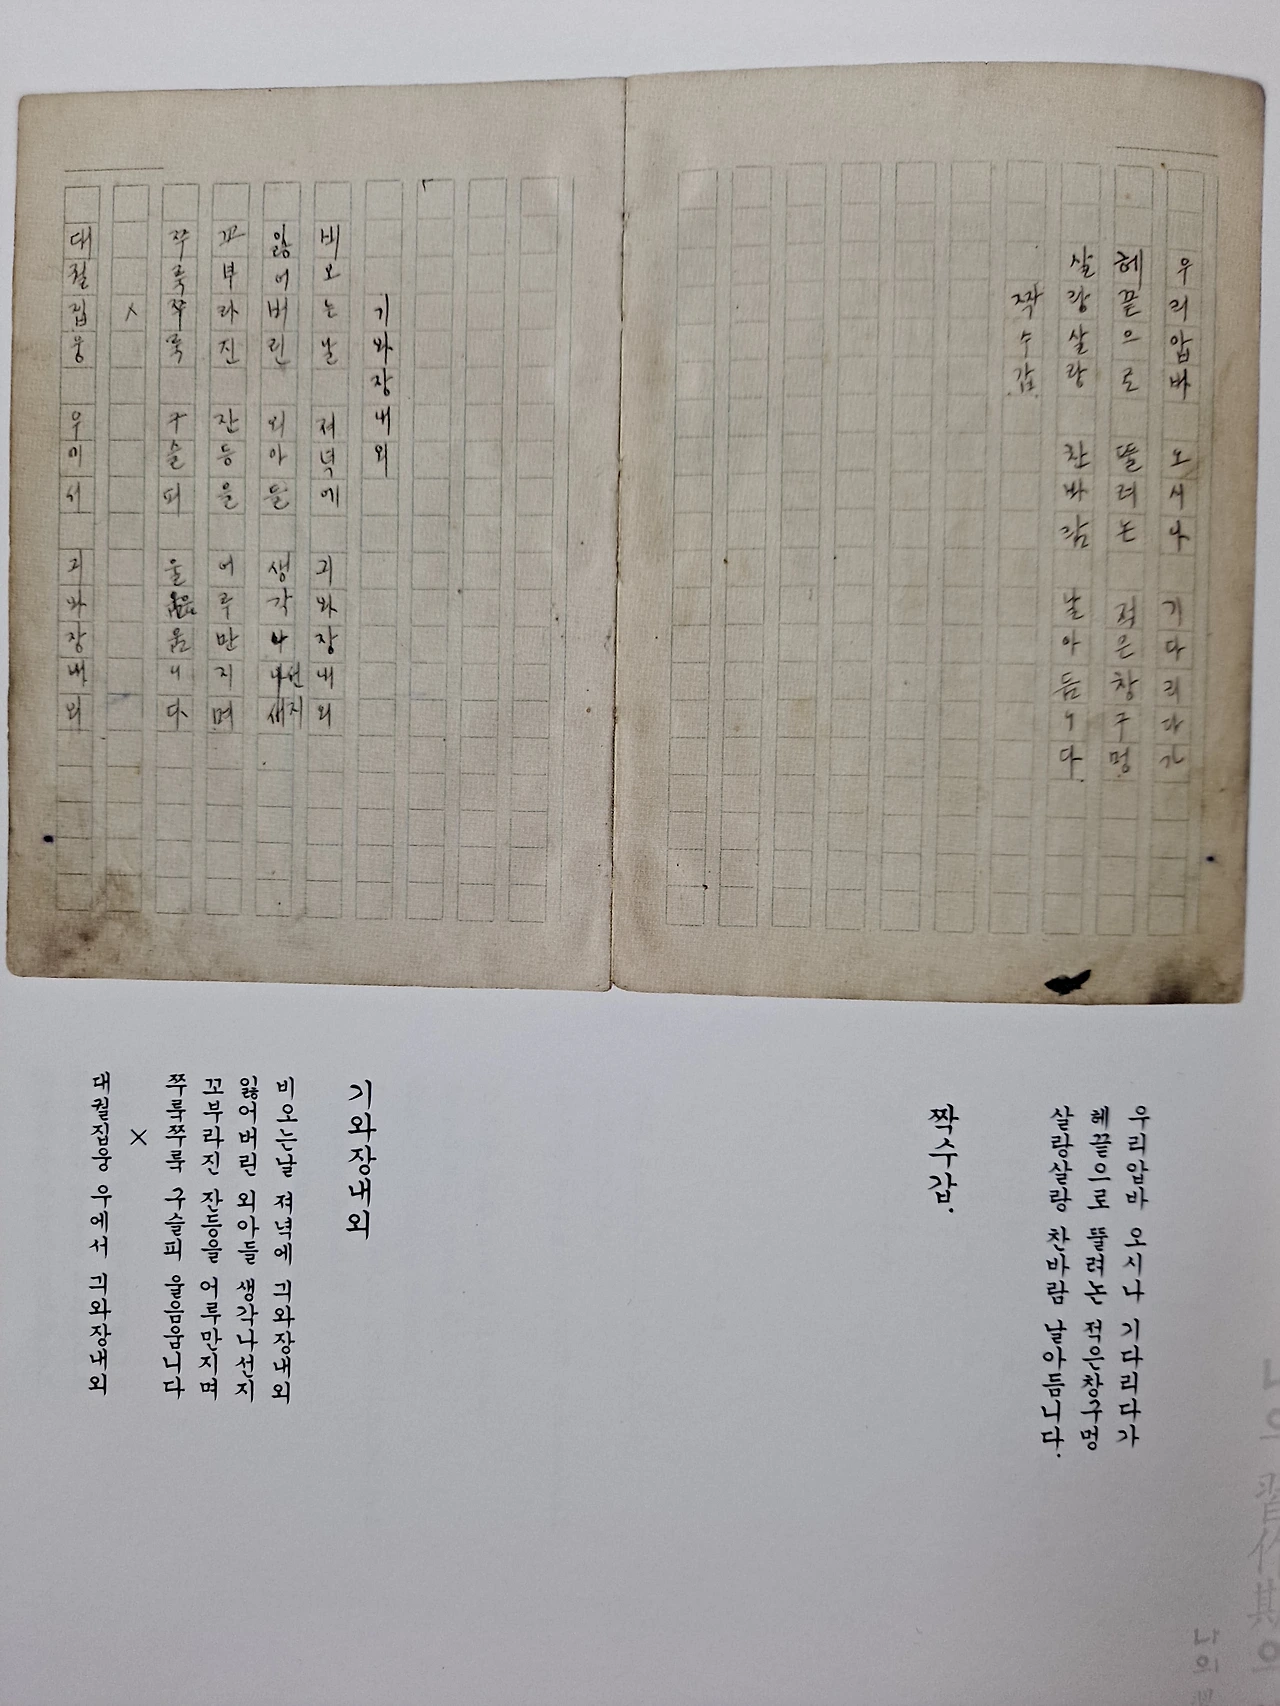 우리압바 오시나 기다리다가
헤끝으로 뚤려논 적은창구멍
살랑살랑 찬바람 날아듬니다.
짝수갑.
기와장내외
비오는날 져녁에 긔와장내외
잃어버린 외아들 생각나선지
꼬부라진 잔등을 어루만지며
쭈룩쭈룩 구슬피 울음웁니다
×
대궐집웅 우이서 긔와장내외
우리압바 오시나 기다리다가
헤끝으로 뚤려논 적은창구멍
살랑살랑 찬바람 날아듬니다.
짝수갑.
기와장내외
비오는날 져녁에 긔와장내외
잃어버린 외아들 생각나선지
꼬부라진 잔등을 어루만지며
쭈룩쭈룩 구슬피 울음웁니다
×
대궐집웅 우에서 긔와장내외